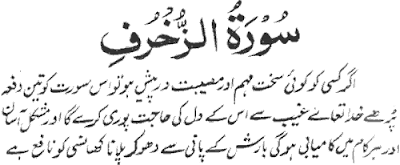 سُوْرَةُ الزُّخْرُفِ
اگر کسی کو کوئی سخت مہم اور مصیبت درپیش ہو تو اس سورت کو تین دفعہ
پڑھے خدا تعالےٰ غیب سے اس کے دل کی حاجت پوری کرے گا اور مشکل آسان
اور ہر کام میں کامیابی ہوگی بارش کے پانی سے دھو کر پلانا کھانسی کو نافع ہے